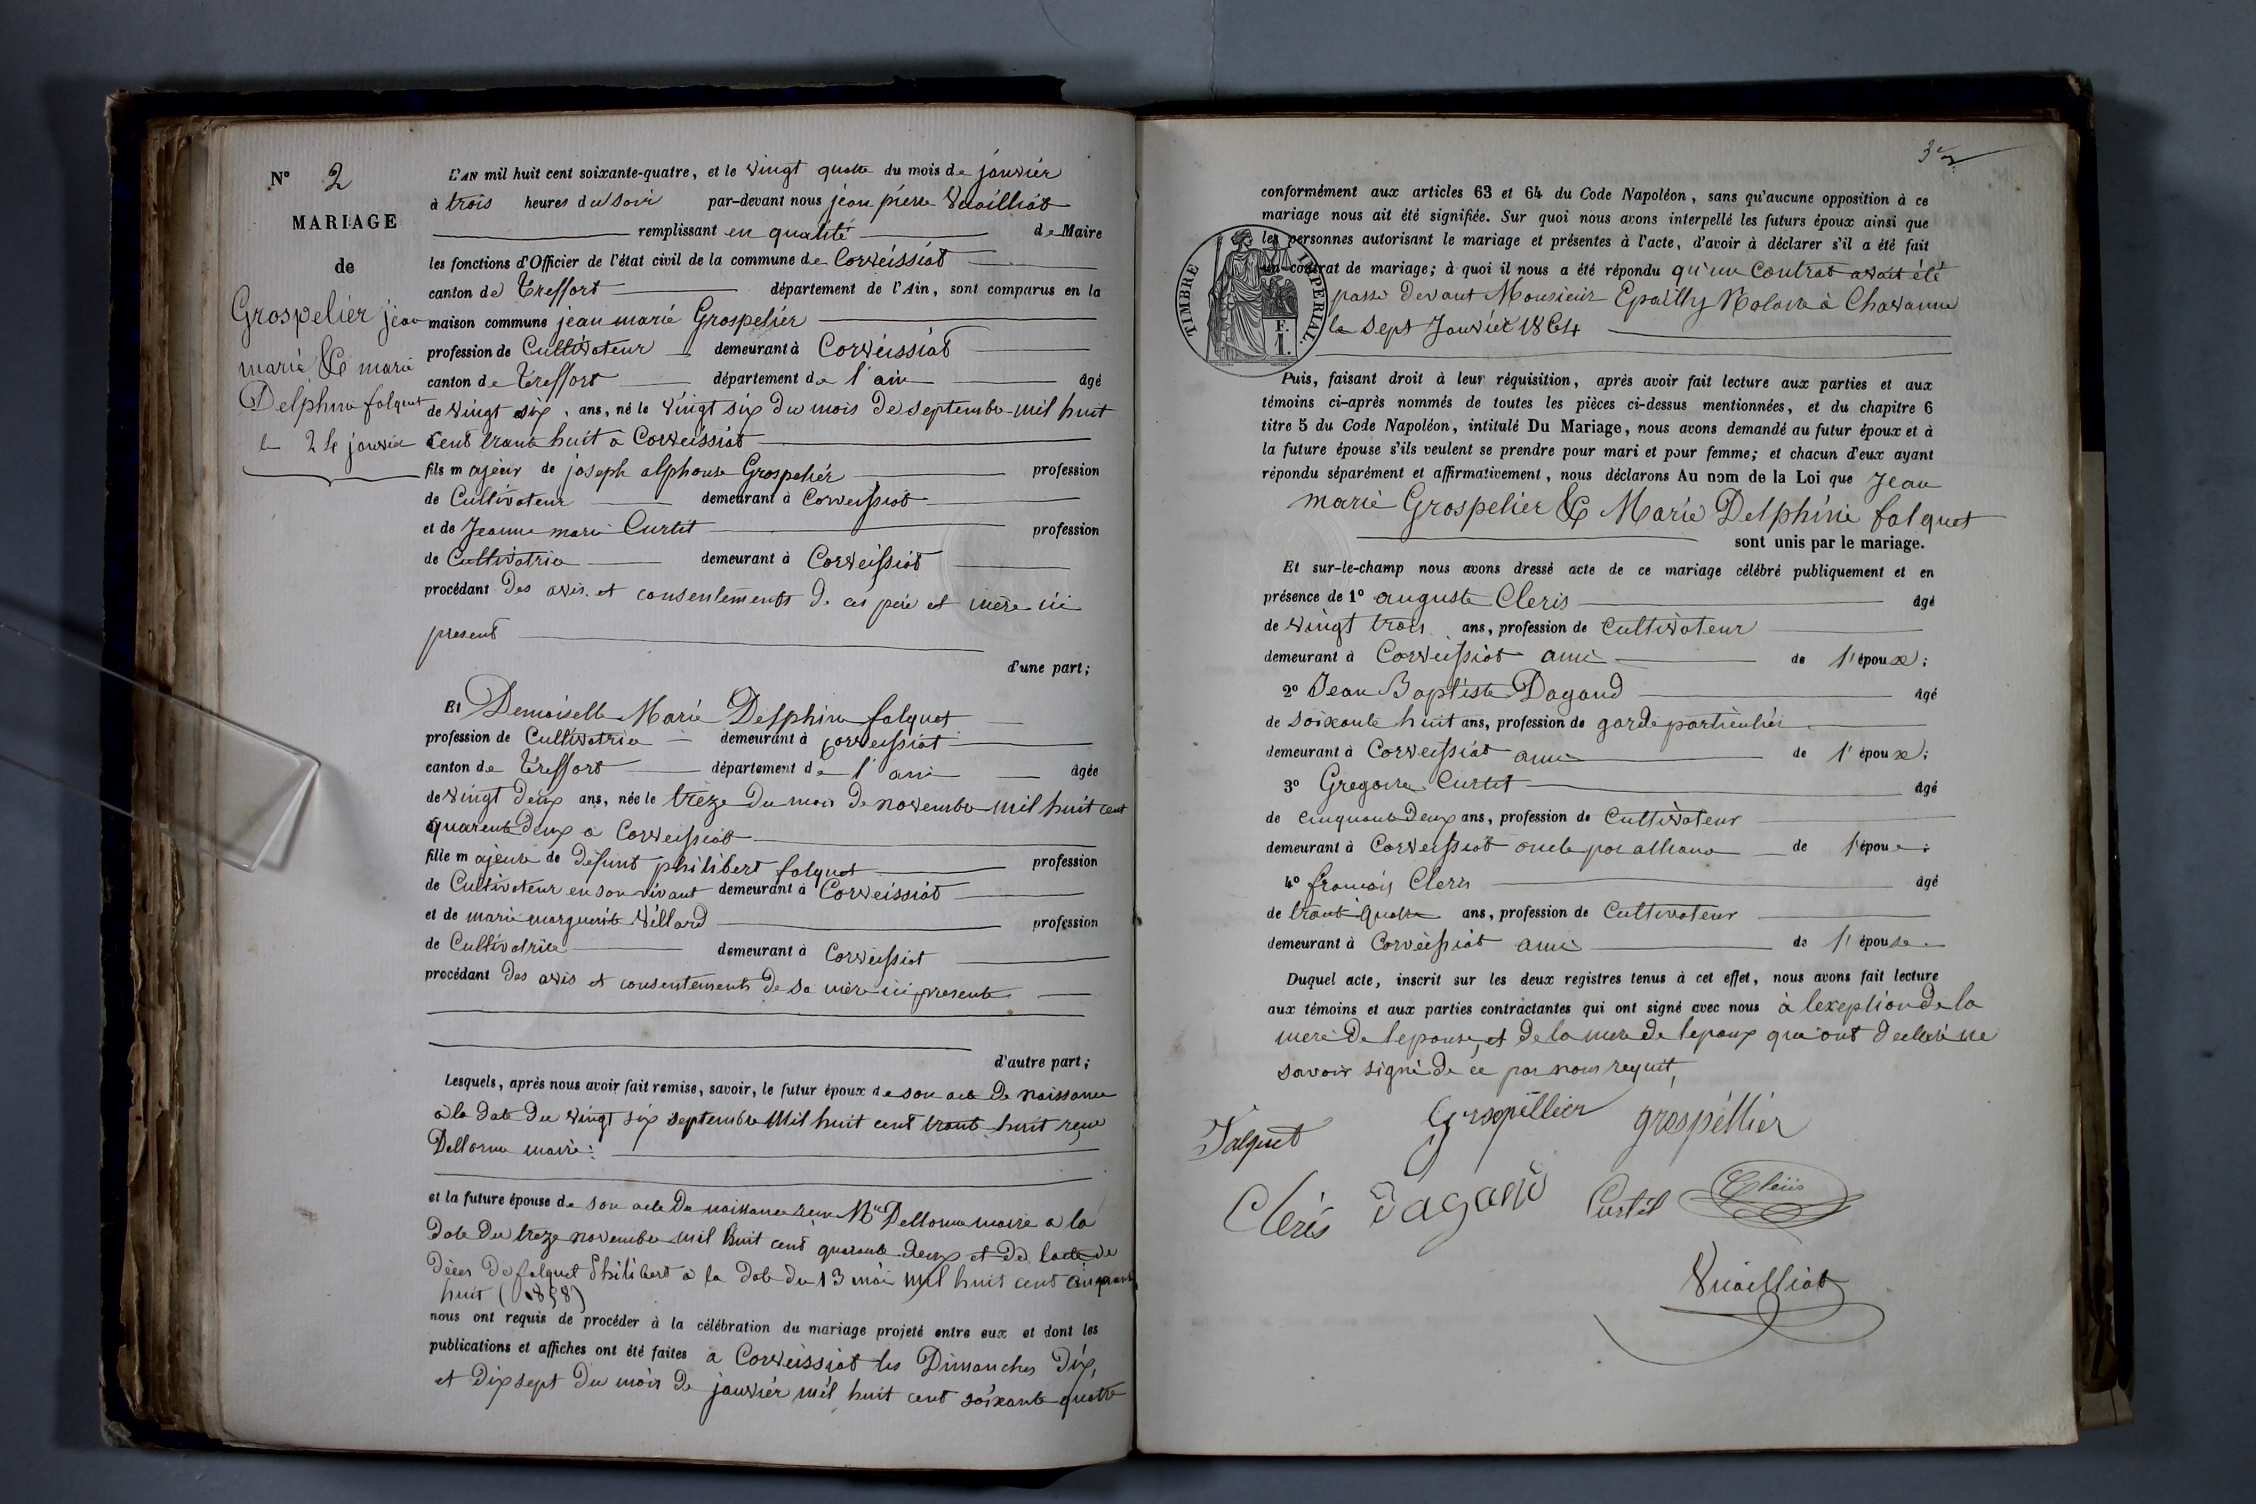 N° 2
MARIAGE
de
Grospelier jean
marie & marie
Delphine falquet
le 24 janvier
L'AN mil huit cent soixante-quatre, et le vingt quatre du mois de janvier
à trois heures du soir par-devant nous jean pierre Vuailliat
remplissant en qualité de Maire
les fonctions d'Officier de l'état civil de la commune de Corveissiat
canton de Treffort département de l'Ain, sont comparus en la
maison commune jean marie Grospelier
profession de Cultivateur demeurant à Corveissiat
canton de Treffort département de l'ain âgé
de vingt six ans, né le vingt six du mois de septembre mil huit
cent trente huit a Corveissiat
fils majeur de joseph alphonse Grospelier profession
de Cultivateur demeurant à Corveissiat
et de Jeanne marie Curtet profession
de Cultivatrice demeurant à Corveissiat
procédant des avis et consentements de ces père et mère ici
present
d'une part;
Et Demoiselle Marie Delphine falquet
profession de Cultivatrice demeurant à Corveissiat
canton de Treffort département de l'ain âgée
de vingt deux ans, née le treze du mois de novembre mil huit cent
quarente deux a Corveissiat
fille majeure de defunt philibert falquet profession
de Cultivateur en son vivant demeurant à Corveissiat
et de marie marguerite Villard profession
de Cultivatrice demeurant à Corveissiat
procédant des avis et consentements de sa mère ici presente
d'autre part;
Lesquels, après nous avoir fait remise, savoir, le futur époux de son acte de naissance
a la date du vingt six septembre mil huit cent trente huit reçue
Dellorme maire:
et la future épouse de son acte de naissance reçu Mr Dellorme maire a la
date du treze novembre mil huit cent quarante deux et de lacte de
décès de falquet Philibert a la date du 13 mai mil huit cent cinquante
huit (1858)
nous ont requis de procéder à la célébration du mariage projeté entre eux et dont les
publications et affiches ont été faites a Corveissiat les Dimanches dix,
et dix sept du mois de janvier mil huit cent soixante quatre
conformément aux articles 63 et 64 du Code Napoléon, sans qu'aucune opposition à ce
mariage nous ait été signifiée. Sur quoi nous avons interpellé les futurs époux ainsi que
les personnes autorisant le mariage et présentes à l'acte, d'avoir à déclarer s'il a été fait
un contrat de mariage; à quoi il nous a été répondu qu'un contrat avait été
passé devant Monsieur Epailly Notaire à Chavanne
le Sept Janvier 1864
TIMBRE IMPÉRIAL.
F.
1.
Puis, faisant droit à leur réquisition, après avoir fait lecture aux parties et aux
témoins ci-après nommés de toutes les pièces ci-dessus mentionnées, et du chapitre 6
titre 5 du Code Napoléon, intitulé Du Mariage, nous avons demandé au futur époux et à
la future épouse s'ils veulent se prendre pour mari et pour femme; et chacun d'eux ayant
répondu séparément et affirmativement, nous déclarons Au nom de la Loi que Jean
marie Grospelier & Marie Delphine falquet
sont unis par le mariage.
Et sur-le-champ nous avons dressé acte de ce mariage célébré publiquement et en
présence de 1° auguste Cleris âgé
de vingt trois ans, profession de Cultivateur
demeurant à Corveissiat ami de l'époux;
2° Jean Baptiste Dagand âgé
de soixante huit ans, profession de garde particulier
demeurant à Corveissiat ami de l'époux;
3° Gregoire Curtet âgé
de cinquante deux ans, profession de Cultivateur
demeurant à Corveissiat oncle par alliance de l'épou
4° francois Cleris âgé
de trente quatre ans, profession de Cultivateur
demeurant à Corveissiat ami de l'épouse
Duquel acte, inscrit sur les deux registres tenus à cet effet, nous avons fait lecture
aux témoins et aux parties contractantes qui ont signé avec nous à lexeption de la
mere de lepouse, et de la mere de lepoux qui ont declaré ne
savoir signé de ce par nous requit,
Falquet Grospellier grospéllier
Clerís Dagand Curtet Cléris
Vuailliat